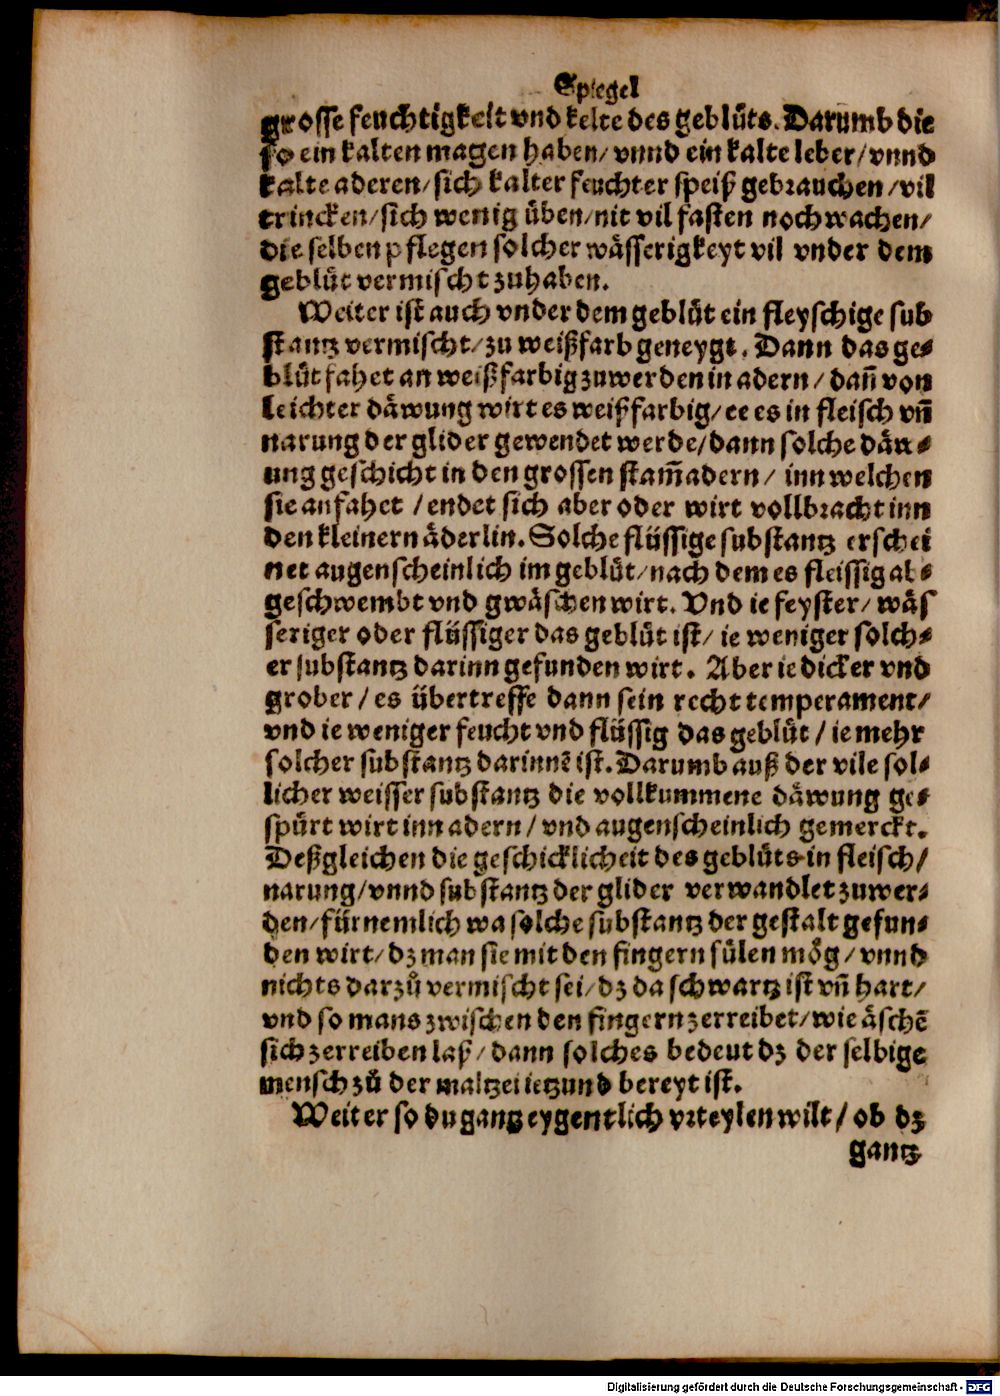 Spiegel
grosse feuchtigkeit vnd kelte des geblüts. Darumb die
so ein kalten magen haben/ vnnd ein kalte leber/ vnnd
kalte aderen/ sich kalter feuchter speiß gebrauchen / vil
trincken/ sich wenig üben/ nit vil fasten noch wachen/
die selben pflegen solcher wässerigkeyt vil vnder dem
geblüt vermischt zuhaben.
Weiter ist auch vnder dem geblüt ein fleyschige sub
stantz vermischt/ zu weißfarb geneygt. Dann das ge⸗
blüt fahet an weißfarbig zuwerden in adern / dañ von
leichter däwung wirt es weißfarbig/ ee es in fleisch vñ
narung der glider gewendet werde/ dann solche däu⸗
ung geschicht in den grossen stam̃adern / inn welchen
sie anfahet / endet sich aber oder wirt vollbracht inn
den kleinern äderlin. Solche flüssige substantz erschei
net augenscheinlich im geblüt/ nach dem es fleissig ab⸗
geschwembt vnd gwäschen wirt. Vnd ie feyster/ wäs
seriger oder flüssiger das geblüt ist/ ie weniger solch⸗
er substantz darinn gefunden wirt. Aber ie dicker vnd
grober / es übertreffe dann sein recht temperament/
vnd ie weniger feucht vnd flüssig das geblüt / ie mehr
solcher substantz darinnē ist. Darumb auß der vile sol⸗
licher weisser substantz die vollkummene däwung ge⸗
spürt wirt inn adern / vnd augenscheinlich gemerckt.
Deßgleichen die geschicklicheit des geblüts in fleisch/
narung/ vnnd substantz der glider verwandlet zuwer⸗
den/ fürnemlich wa solche substantz der gestalt gefun⸗
den wirt/ dz man sie mit den fingern fülen mög / vnnd
nichts darzů vermischt sei/ dz da schwartz ist vñ hart/
vnd so mans zwischen den fingern zerreibet/ wie äschē
sich zerreiben laß / dann solches bedeut dz der selbige
mensch zů der maltzei ietzund bereyt ist.
Weiter so du gantz eygentlich vrteylen wilt / ob dz
gantz
Digitalisierung gefördert durch die Deutsche Forschungsgemeinschaft - DFG